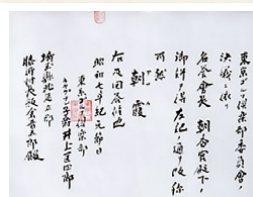 東京ゴルフ倶楽部委員會ノ
決議ニ依リ
名誉會長 朝香宮殿下ノ
御許ヲ得左記ノ通リ改称
可然
朝霞
右及回答候也
昭和七年紀元節日
東京ゴルフ倶楽部
井上
埼玉縣北足立郡
膝折村長
殿